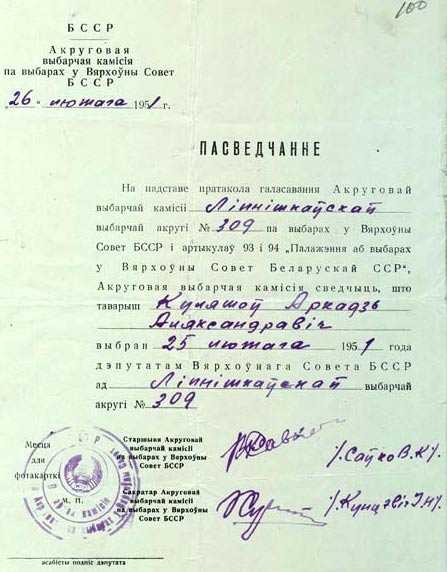 100
БССР
Акруговая
выбарчая камісія
па выбарах у Вярхоўны Совет
БССР
„26“ лютага 1951 г.
ПАСВЕДЧАННЕ
На падставе пратакола галасавання Акруговай
выбарчай камісіі Ліпнішкаўскай
выбарчай акругі № 309 па выбарах у Вярхоўны
Совет БССР і артыкулаў 93 і 94 „Палажэння аб выбарах
у Вярхоўны Совет Беларускай ССР“,
Акруговая выбарчая камісія сведчыць, што
таварыш Куляшоў Аркадзь
Аляксандравіч
выбран 25 лютага 1951 года
дэпутатам Вярхоўнага Совета БССР
ад Ліпнішкаўскай выбарчай
акругі № 309
Месца
для
фотакарткі
М. П.
Старшыня Акруговай
выбарчай камісіі
па выбарах у Вярхоўны
Совет БССР
/Саўко В.К/
Сакратар Акруговай
выбарчай камісіі
па выбарах у Вярхоўны
Совет БССР
асабісты подпіс дэпутата